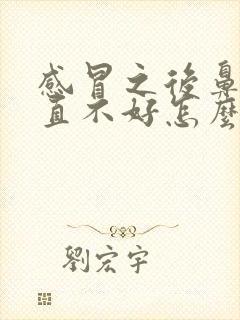 感冒之後鼻
直不好怎麼
劉宏宇